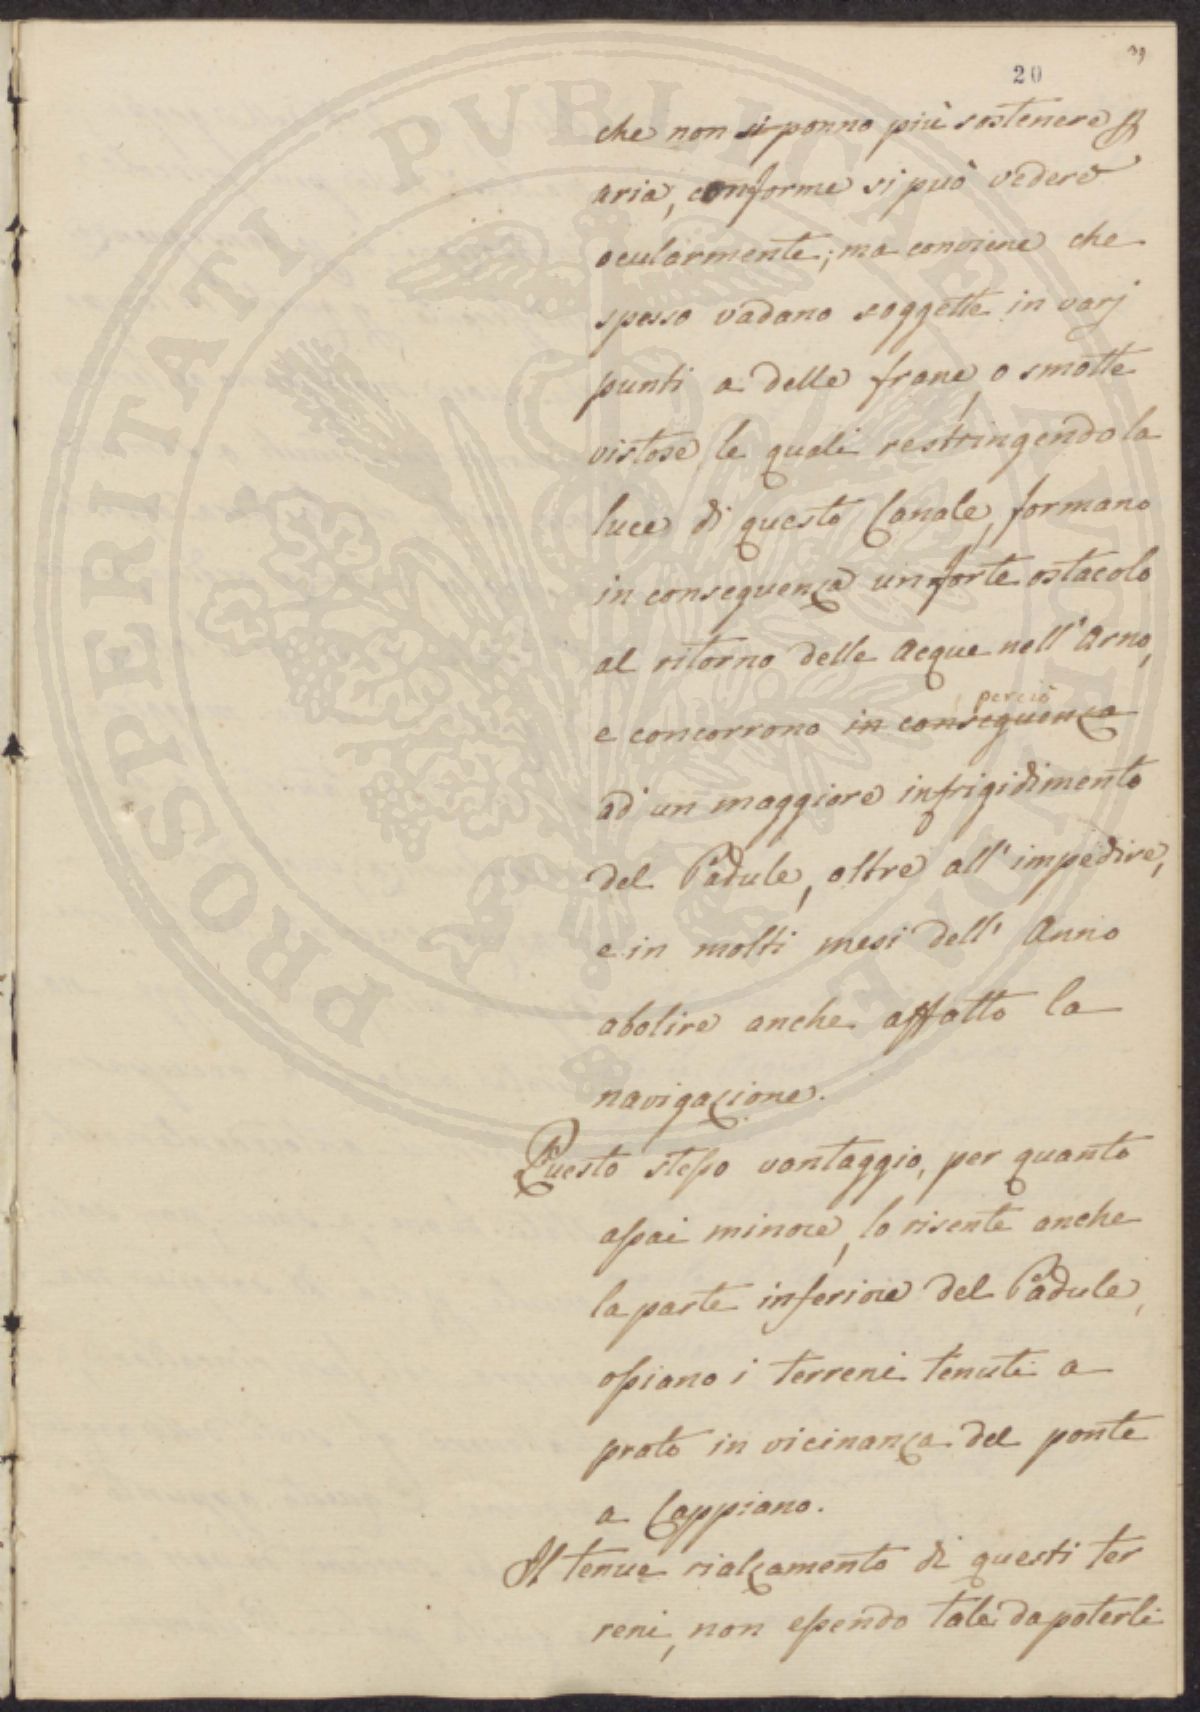 39
20
che non si ponno più sostenere p
aria, conforme si può vedere
ocularmente; ma conviene che
spesso vadano soggette in varj
punti a delle frane, o smotte
vistose, le quali restringendo la
luce di questo Canale, formano
in conseguenza un forte ostacolo
al ritorno delle Acque nell'Arno,
perciò
e concorrono in conseguenza
ad un maggiore infrigidimento
del Padule, oltre all'impedire,
e in molti mesi dell'Anno
abolire anche affatto la
navigazione.
Questo stesso vantaggio, per quanto
assai minore, lo risente anche
la parte inferiore del Padule,
ossiano i terreni tenuti a
prato in vicinanza del ponte
a Cappiano.
Il tenue rialzamento di questi ter
reni, non essendo tale da poterli
PROSPERITATI PVBLICAE AVGENDAE